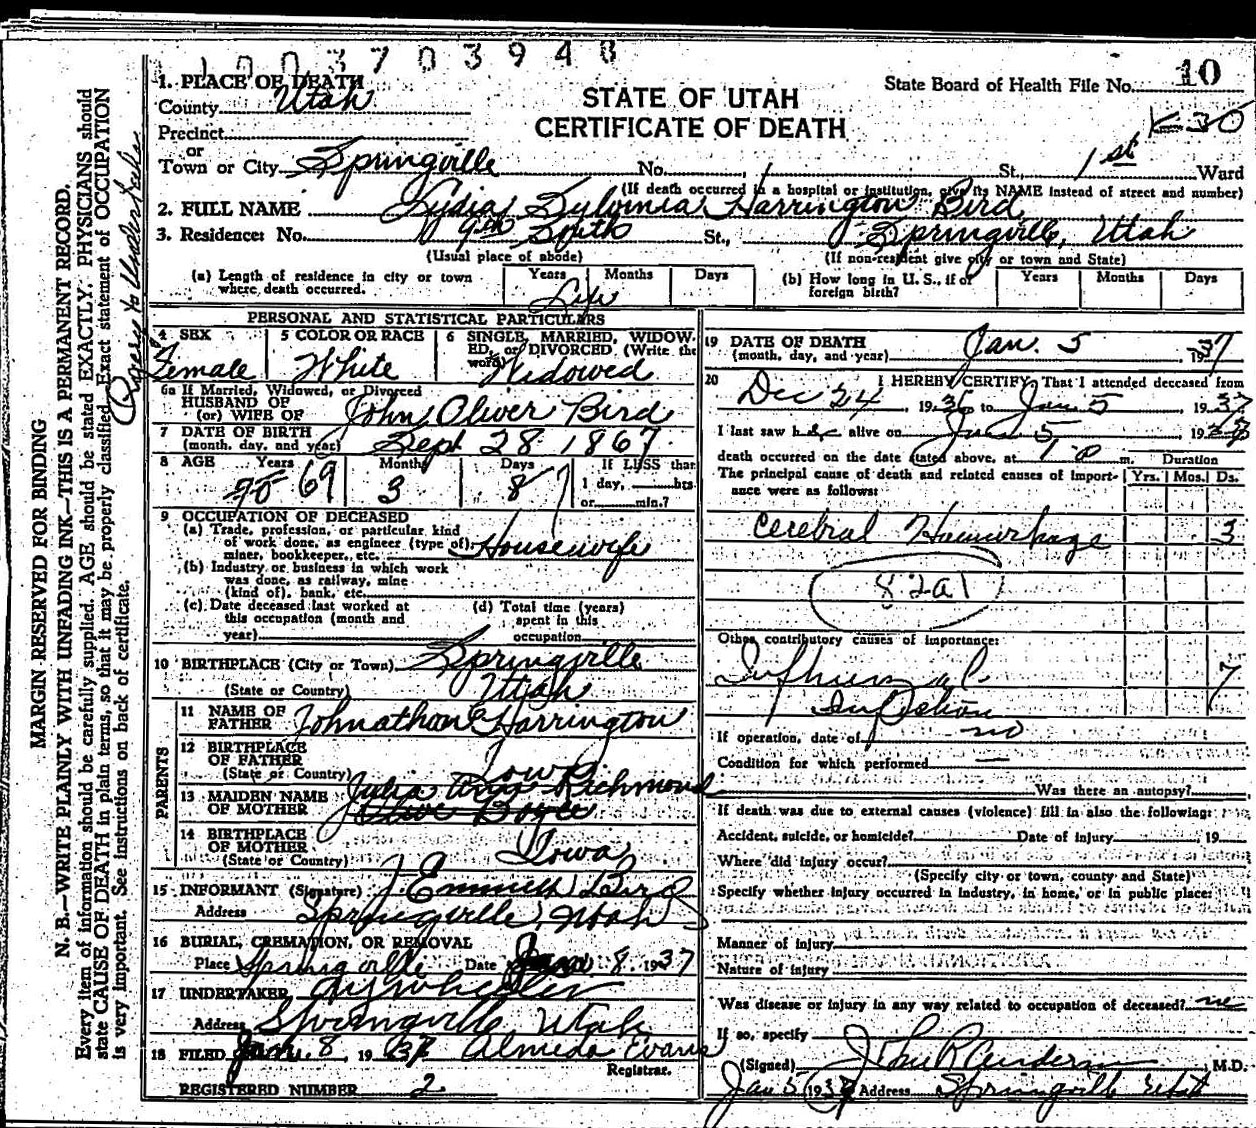 1003703948
1. PLACE OF DEATH
County Utah
State Board of Health File No. 10
STATE OF UTAH
CERTIFICATE OF DEATH
Precinct
or
Town or City Springville No. St., 1st Ward
(If death occurred in a hospital or institution, give its NAME instead of street and number)
2. FULL NAME Lydia Sylvinia Harrington Bird
3. Residence: No. 9th South St., Springville, Utah
(Usual place of abode) (If non-resident give city or town and State)
(a) Length of residence in city or town where death occurred. Years Months Days
Life
(b) How long in U. S., if of foreign birth? Years Months Days
PERSONAL AND STATISTICAL PARTICULARS
4 SEX Female
5 COLOR OR RACE White
6 SINGLE, MARRIED, WIDOWED, or DIVORCED (Write the word) Widowed
6a If Married, Widowed, or Divorced
HUSBAND OF
(or) WIFE OF John Oliver Bird
7 DATE OF BIRTH
(month, day, and year) Sept 28 1867
8 AGE Years 69 Months 3 Days 7
If LESS than
1 day, hrs
or min.?
9 OCCUPATION OF DECEASED
(a) Trade, profession, or particular kind
of work done, as engineer (type of), Housewife
miner, bookkeeper, etc.
(b) Industry or business in which work
was done, as railway, mine
(kind of), bank, etc.
(c) Date deceased last worked at
this occupation (month and
year)
(d) Total time (years)
spent in this
occupation
10 BIRTHPLACE (City or Town) Springville
(State or Country) Utah
PARENTS
11 NAME OF
FATHER Johnathon Harrington
12 BIRTHPLACE
OF FATHER
(State or Country) Iowa
13 MAIDEN NAME
OF MOTHER Julia Ann Richmond
14 BIRTHPLACE
OF MOTHER
(State or Country) Iowa
15 INFORMANT (Signature) J. Emmett Bird
Address Springville, Utah
16 BURIAL, CREMATION, OR REMOVAL
Place Springville Date Jan 8 1937
17 UNDERTAKER A Y Wheeler
Address Springville, Utah
18 FILED Jan. 8, 1937 Almeda Evans
Registrar.
REGISTERED NUMBER 2
19 DATE OF DEATH
(month, day, and year) Jan. 5 1937
20 I HEREBY CERTIFY, That I attended deceased from
Dec 24, 1936 to Jan 5, 1937
I last saw her alive on Jan 5, 1937
death occurred on the date stated above, at 1 P m. Duration
The principal cause of death and related causes of importance were as follows: Yrs. Mos. Ds.
Cerebral Hemorrhage 3
82a1
Other contributory causes of importance:
Influenzal 7
Infection
If operation, date of no
Condition for which performed —
Was there an autopsy?
If death was due to external causes (violence) fill in also the following:
Accident, suicide, or homicide? Date of injury , 19
Where did injury occur?
(Specify city or town, county and State)
Specify whether injury occurred in industry, in home, or in public place:
Manner of injury
Nature of injury
Was disease or injury in any way related to occupation of deceased? no
If so, specify
(Signed) John R Anderson, M.D.
Jan 5 1937 Address Springville Utah
MARGIN RESERVED FOR BINDING
N. B.—WRITE PLAINLY WITH UNFADING INK—THIS IS A PERMANENT RECORD.
Every item of information should be carefully supplied. AGE should be stated EXACTLY. PHYSICIANS should
state CAUSE OF DEATH in plain terms, so that it may be properly classified. Exact statement of OCCUPATION
is very important. See instructions on back of certificate.